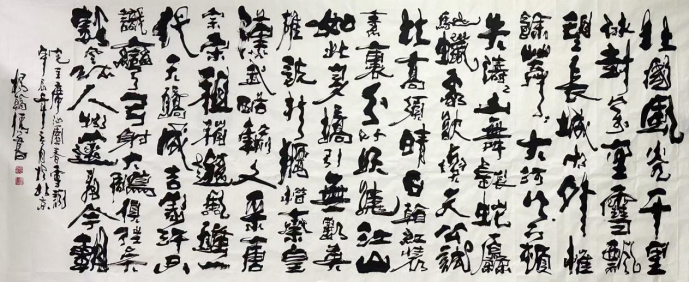 北國風光千里
冰封萬里雪飄
望長城內外惟
餘莽莽大河上下頓
失滔滔山舞銀蛇原
馳蠟象欲與天公試
比高須晴日看紅裝
素裹分外妖嬈江山
如此多嬌引無數英
雄競折腰惜秦皇
漢武略輸文采唐
宗宋祖稍遜風騷一
代天驕成吉思汗只
識彎弓射大鵰俱往矣
數風流人物還看今朝
毛主席沁園春雪詞
年月於北京
楊